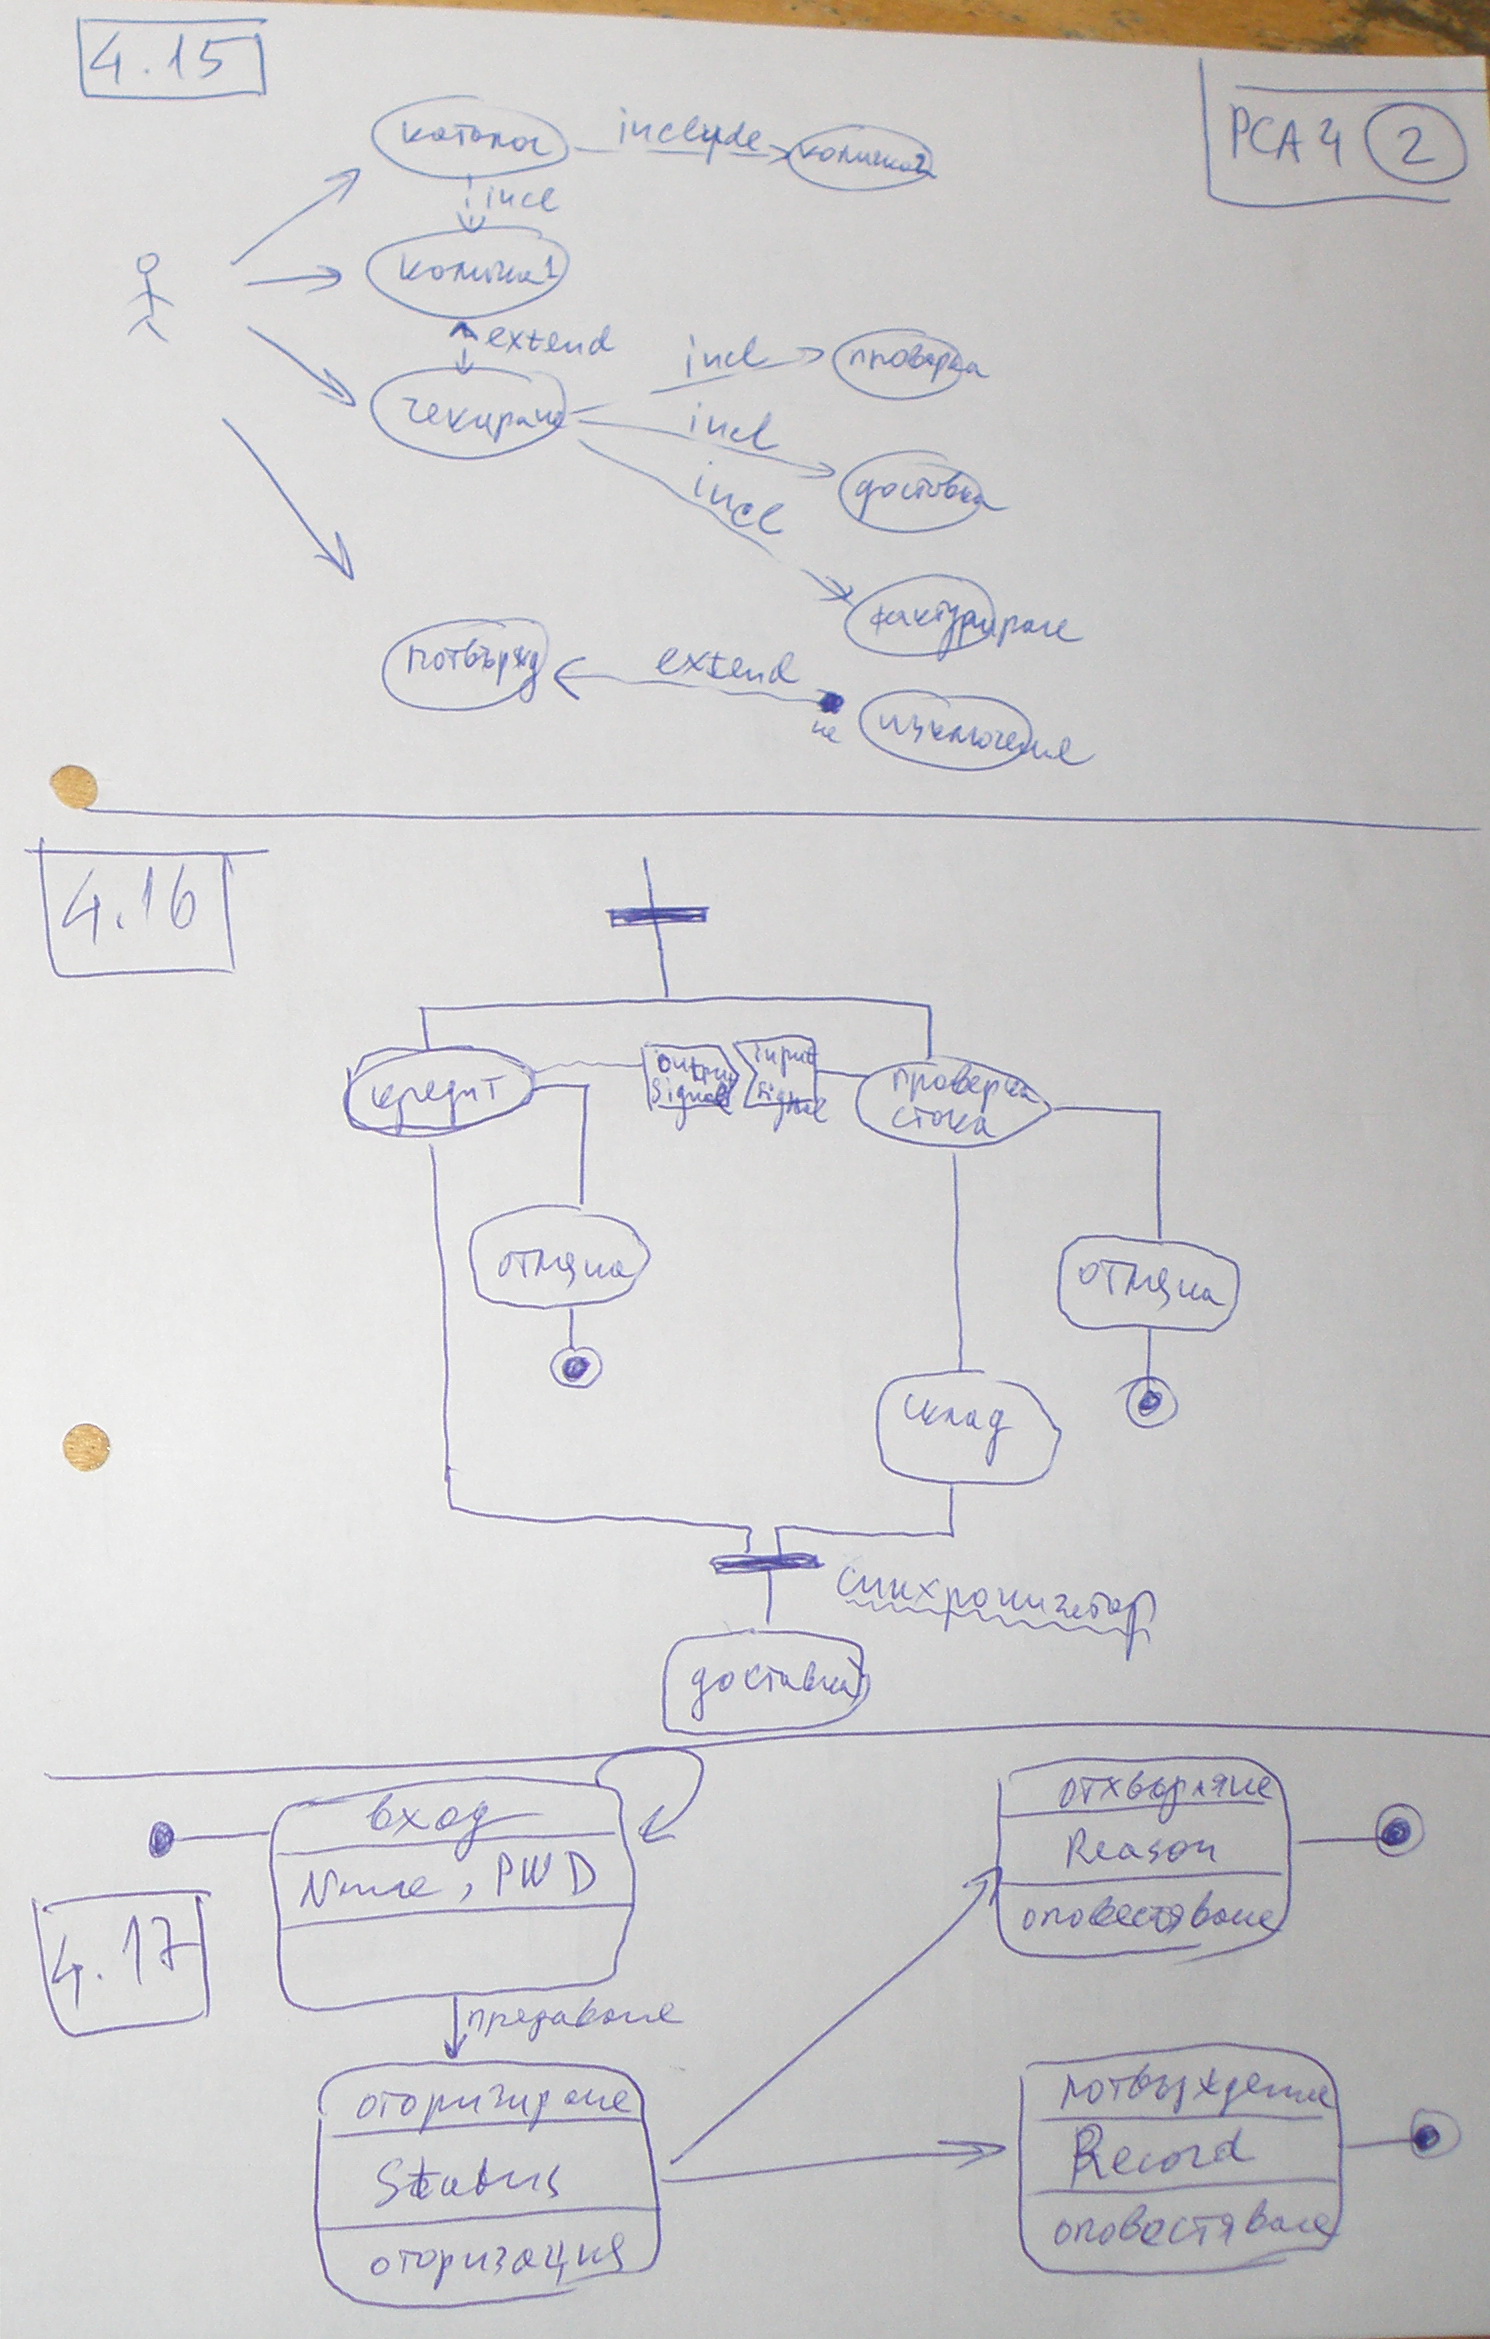 4.15
РСА 4 2
каталог
include
количка2
incl
количка1
extend
чекиране
incl
проверка
incl
доставка
incl
фактуриране
потвържд
extend
не
изключение
4.16
кредит
output
signal
input
signal
проверка
стока
отмяна
отмяна
склад
синхронизатор
доставка
вход
Name, PWD
4.17
предаване
оторизиране
Status
оторизация
отхвърляне
Reason
оповестяване
потвърждение
Record
оповестяване